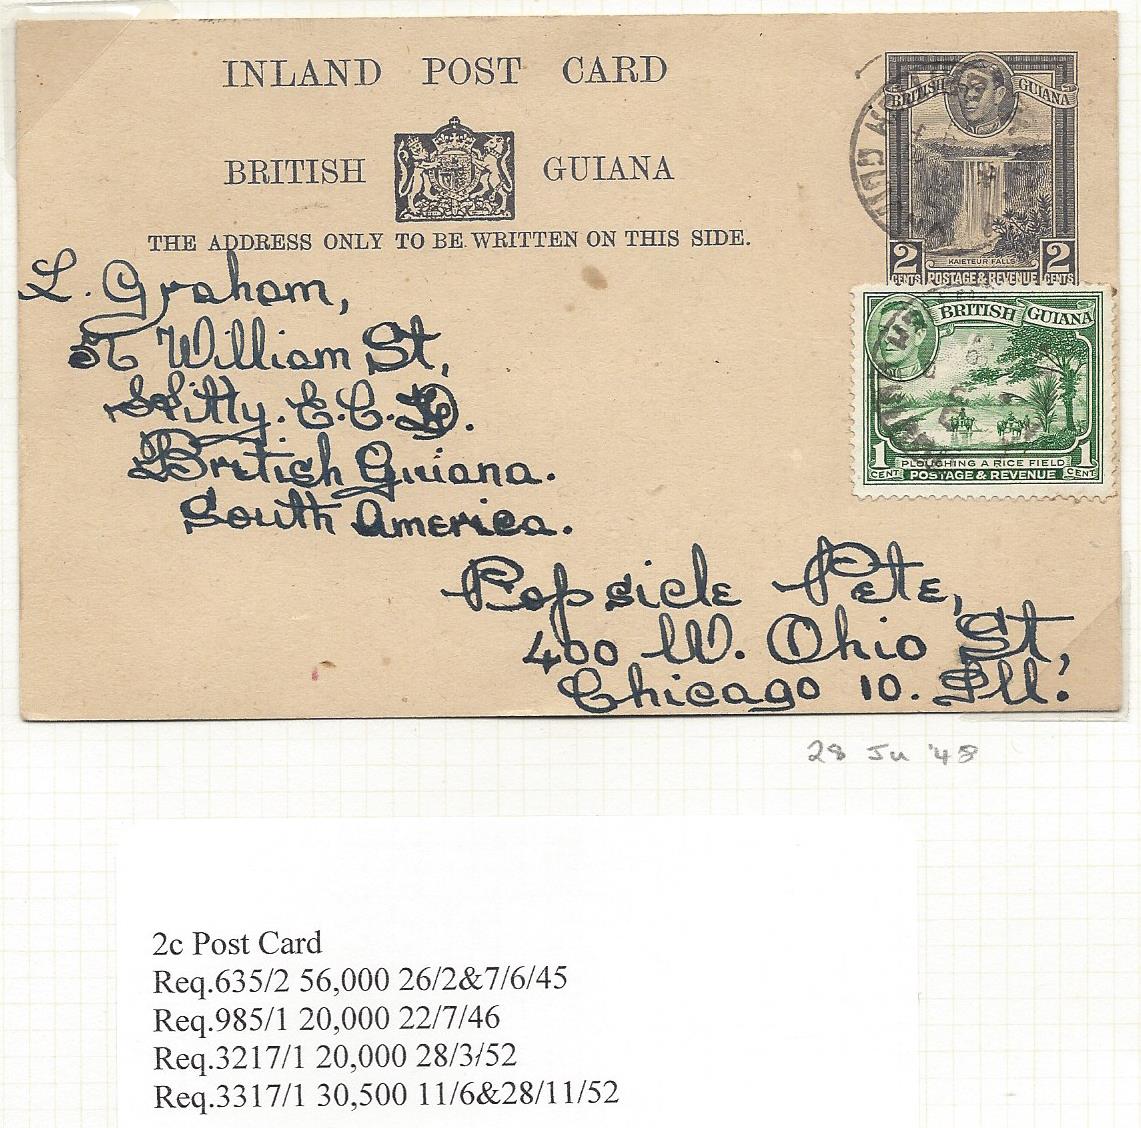 INLAND POST CARD
BRITISH GUIANA
THE ADDRESS ONLY TO BE WRITTEN ON THIS SIDE.
BRITISH GUIANA
KAIETEUR FALLS
2 CENTS POSTAGE & REVENUE 2 CENTS
BRITISH GUIANA
PLOUGHING A RICE FIELD
1 CENT POSTAGE & REVENUE 1 CENT
L. Graham,
William St,
Kitty. E.C.D.
British Guiana.
South America.
Popsicle Pete,
400 W. Ohio St,
Chicago 10. Ill.
28 Ju '48
2c Post Card
Req.635/2 56,000 26/2&7/6/45
Req.985/1 20,000 22/7/46
Req.3217/1 20,000 28/3/52
Req.3317/1 30,500 11/6&28/11/52